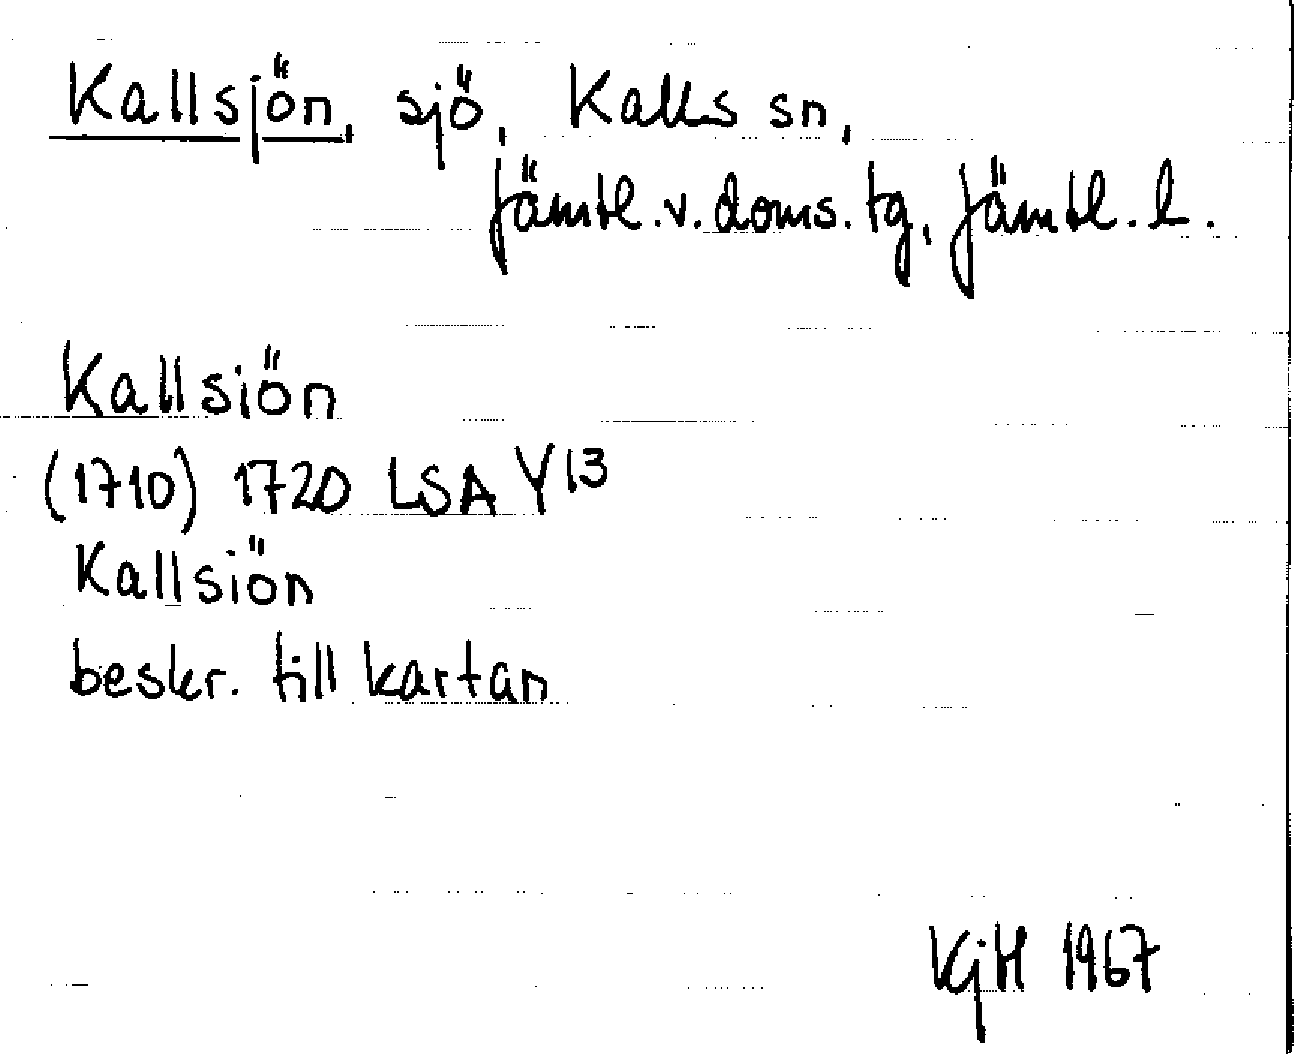 Kallsjön, sjö, Kalls sn,
Jämtl. v. doms. tg, Jämtl. l.
Kallsiön
(1710) 1720 LSA Y13
Kallsiön
beskr. till kartan
KjH 1967